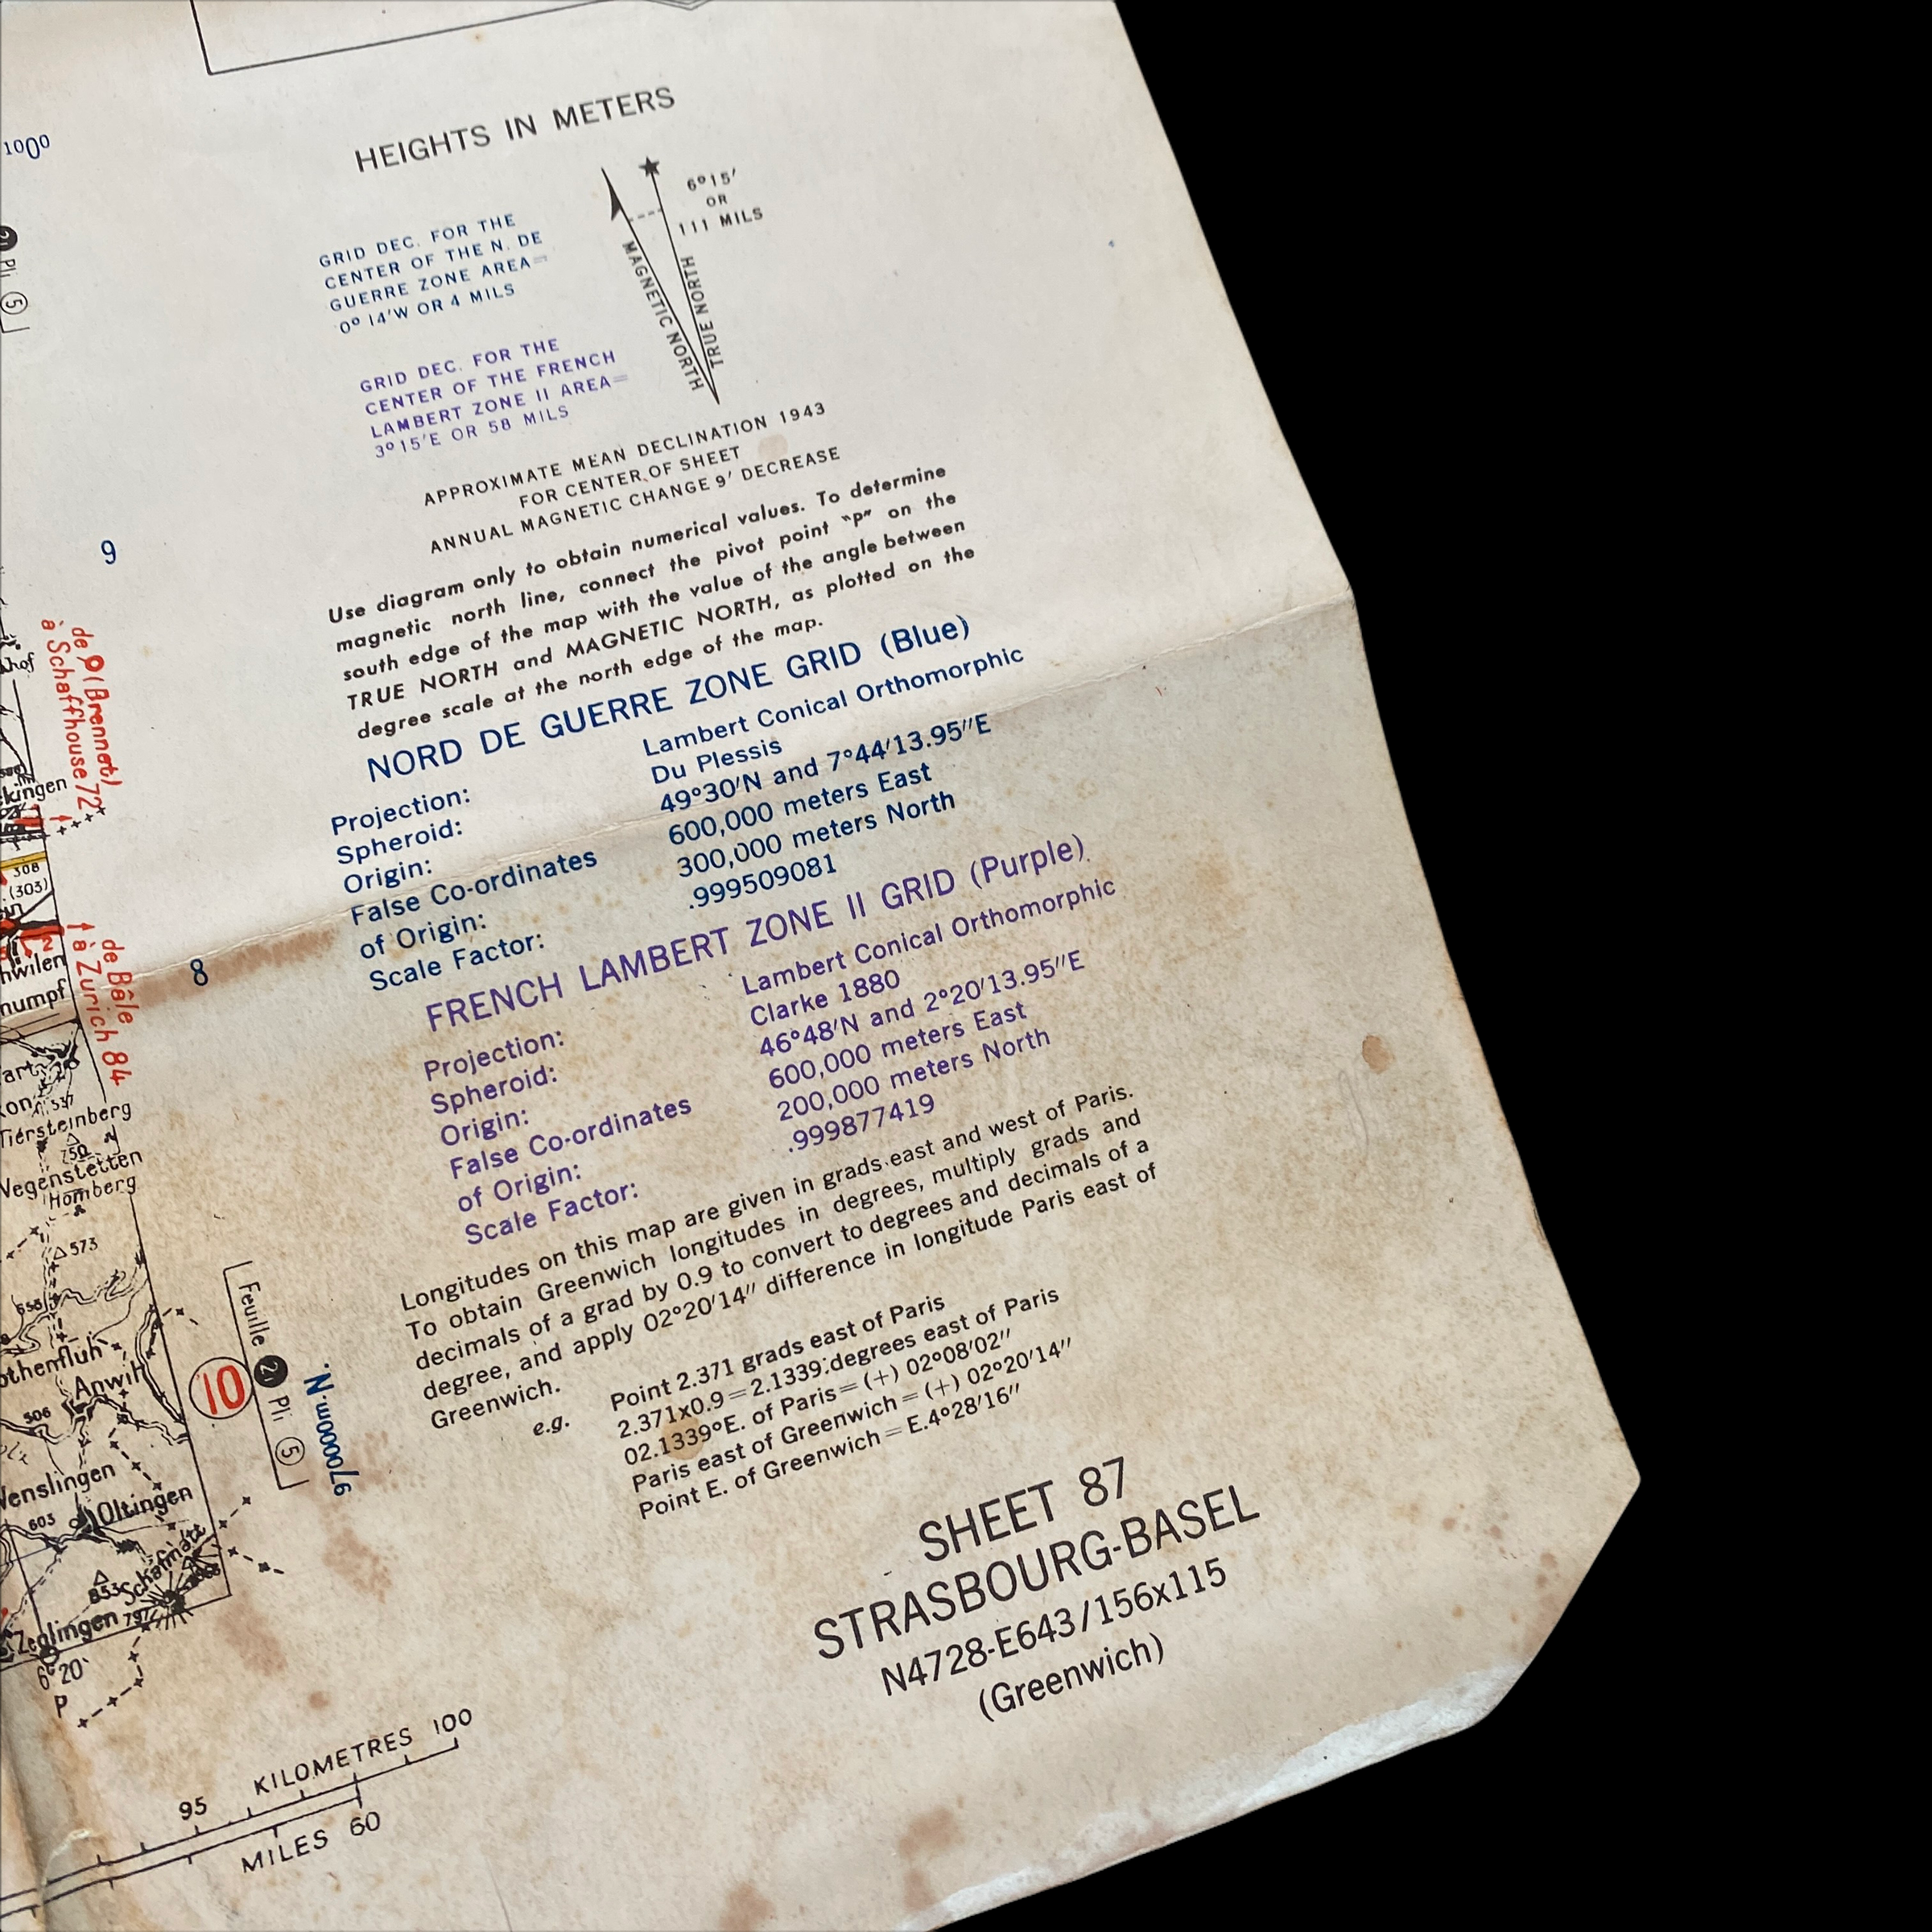 HEIGHTS IN METERS
1000
6°15′
OR
111 MILS
MAGNETIC NORTH
TRUE NORTH
GRID DEC. FOR THE
CENTER OF THE N. DE
GUERRE ZONE AREA=
0° 14′W OR 4 MILS
GRID DEC. FOR THE
CENTER OF THE FRENCH
LAMBERT ZONE II AREA=
3°15′E OR 58 MILS
APPROXIMATE MEAN DECLINATION 1943
FOR CENTER OF SHEET
ANNUAL MAGNETIC CHANGE 9′ DECREASE
Use diagram only to obtain numerical values. To determine
magnetic north line, connect the pivot point "P" on the
south edge of the map with the value of the angle between
TRUE NORTH and MAGNETIC NORTH, as plotted on the
degree scale at the north edge of the map.
NORD DE GUERRE ZONE GRID (Blue)
Projection: Lambert Conical Orthomorphic
Spheroid: Du Plessis
Origin: 49°30′N and 7°44′13.95″E
False Co-ordinates 600,000 meters East
of Origin: 300,000 meters North
Scale Factor: .999509081
FRENCH LAMBERT ZONE II GRID (Purple)
Projection: Lambert Conical Orthomorphic
Spheroid: Clarke 1880
Origin: 46°48′N and 2°20′13.95″E
False Co-ordinates 600,000 meters East
of Origin: 200,000 meters North
Scale Factor: .999877419
Longitudes on this map are given in grads east and west of Paris.
To obtain Greenwich longitudes in degrees, multiply grads and
decimals of a grad by 0.9 to convert to degrees and decimals of a
degree, and apply 02°20′14″ difference in longitude Paris east of
Greenwich.
e.g. Point 2.371 grads east of Paris
2.371x0.9=2.1339 degrees east of Paris
02.1339°E. of Paris=(+) 02°08′02″
Paris east of Greenwich=(+) 02°20′14″
Point E. of Greenwich=E.4°28′16″
SHEET 87
STRASBOURG-BASEL
N4728-E643/156x115
(Greenwich)
Pli 5
9
de (Brennet)
à Schaffhouse 72
308
(303)
8
de Bâle
à Zurich 84
Tiersteinberg
750
Wegenstetten
Homberg
573
Anwil
506
Wenslingen
Oltingen
603
Schafmatt
853
797
Zeglingen
6°20′
P
10
Feuille 21 Pli 5
970000m.N.
KILOMETRES 100
95
MILES 60